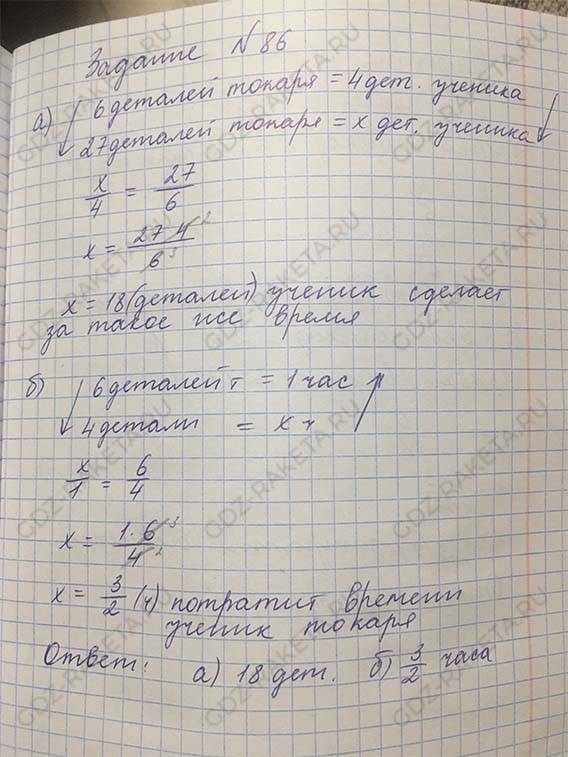 Задание №86
а) ↓ 6 деталей токаря = 4 дет. ученика ↓
27 деталей токаря = x дет. ученика
x/4 = 27/6
x = 27 4 2 / 6 3
x = 18 (деталей) ученик сделает
за такое же время
б) ↓ 6 деталей т = 1 час ↑
4 детали = x ч
x/1 = 6/4
x = 1 · 6 3 / 4 2
x = 3/2 (ч) потратит времени
ученик токаря
Ответ: а) 18 дет. б) 3/2 часа
GDZ-RAKETA.RU